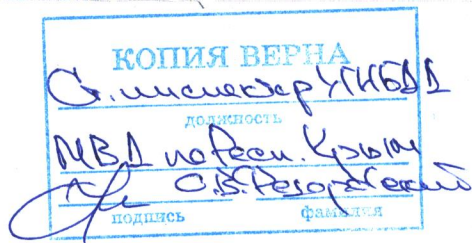 КОПИЯ ВЕРНА
Ст. инспектор УГИБДД
должность
МВД по Респ. Крым
С.В.
подпись фамилия